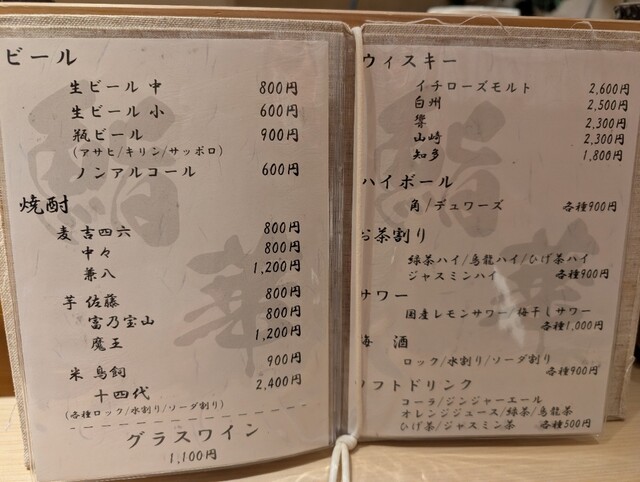 ビール
生ビール 中 800円
生ビール 小 600円
瓶ビール 900円
(アサヒ/キリン/サッポロ)
ノンアルコール 600円
焼酎
麦 吉四六 800円
中々 800円
兼八 1,200円
芋 佐藤 800円
富乃宝山 800円
魔王 1,200円
米 鳥飼 900円
十四代 2,400円
(各種ロック/水割り/ソーダ割り)
グラスワイン
1,100円
ウィスキー
イチローズモルト 2,600円
白州 2,500円
響 2,300円
山崎 2,300円
知多 1,800円
ハイボール
角/デュワーズ 各種900円
お茶割り
緑茶ハイ/烏龍ハイ/ひげ茶ハイ
ジャスミンハイ 各種900円
サワー
国産レモンサワー/梅干しサワー
各種1,000円
梅 酒
ロック/水割り/ソーダ割り
各種900円
ソフトドリンク
コーラ/ジンジャーエール
オレンジジュース/緑茶/烏龍茶
ひげ茶/ジャスミン茶 各種500円
鮨
華
鮨
華